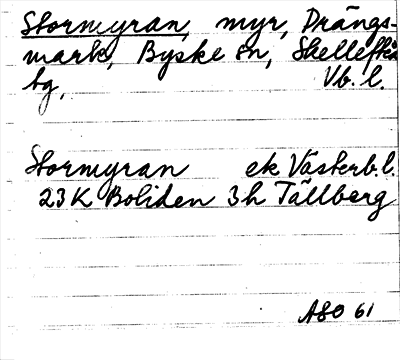 Stormyran, myr, Drängs-
mark, Byske sn, Skellefteå
tg, Vb. l.
Stormyran ek Västerb. l.
23K Boliden 3h Tällberg
ASO 61